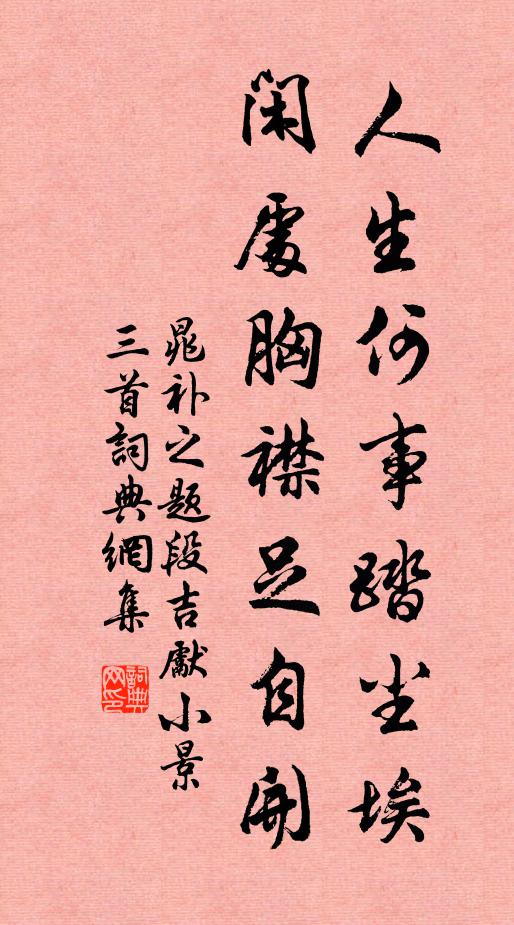 人生何事踏尘埃
闲處胸襟足自開
晁补之题段吉獻小景
三首詞典網集
詞典
网印